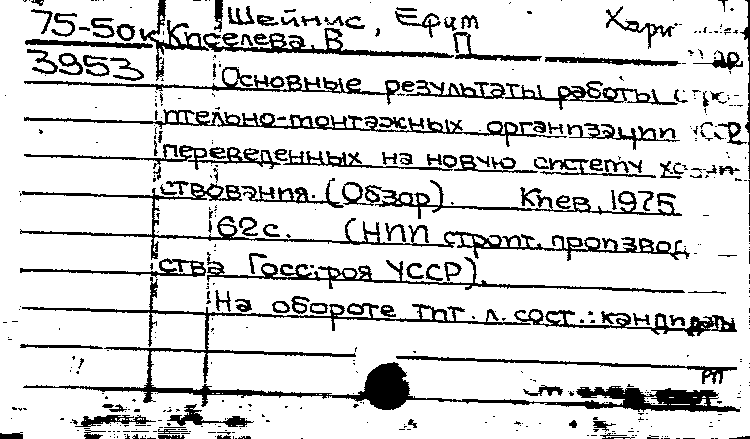 75-50к Шейнис, Ефим
Киселева, В П
3953 Основные результаты работы строи-
тельно-монтажных организации УССР
переведенных на новую систему хозяй-
ствования. (Обзор). Киев, 1975
62с. (НИИ строит. производ
ства Госстроя УССР).
На обороте тит. л. сост.: кандидаты